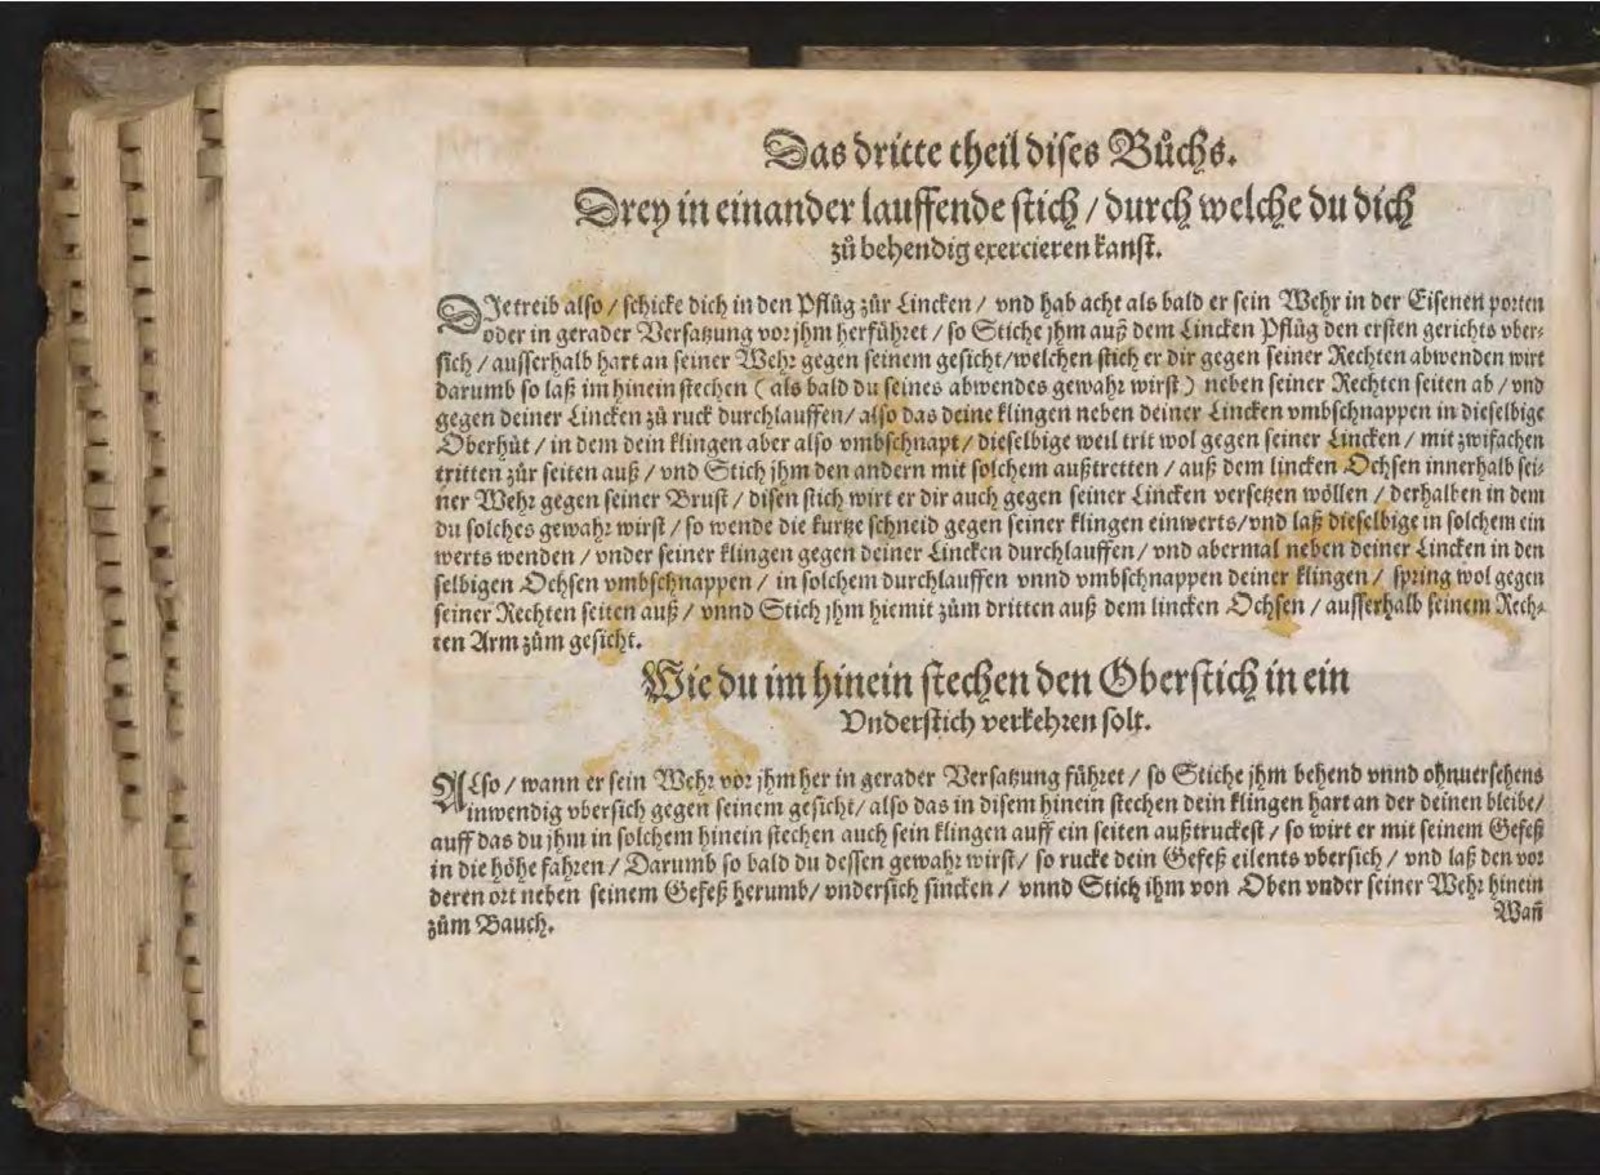 Das dritte theil dises Bůchs.
Drey in einander lauffende stich / durch welche du dich
zů behendig exercieren kanst.
DIe treib also / schicke dich in den Pflůg zůr Lincken / vnd hab acht als bald er sein Wehr in der Eisenen porten
oder in gerader Versatzung vor jhm herführet / so Stiche jhm auß dem Lincken Pflůg den ersten gerichts vber-
sich / ausserhalb hart an seiner Wehr gegen seinem gesicht / welchen stich er dir gegen seiner Rechten abwenden wirt
darumb so laß im hinein stechen ( als bald du seines abwendes gewahr wirst ) neben seiner Rechten seiten ab / vnd
gegen deiner Lincken zů ruck durchlauffen / also das deine klingen neben deiner Lincken vmbschnappen in dieselbige
Oberhůt / in dem dein klingen aber also vmbschnapt / dieselbige weil trit wol gegen seiner Lincken / mit zwifachen
tritten zůr seiten auß / vnd Stich jhm den andern mit solchem außtretten / auß dem lincken Ochsen innerhalb sei-
ner Wehr gegen seiner Brust / disen stich wirt er dir auch gegen seiner Lincken versetzen wöllen / derhalben in dem
du solches gewahr wirst / so wende die kurtze schneid gegen seiner klingen einwerts / vnd laß dieselbige in solchem ein
werts wenden / vnder seiner klingen gegen deiner Lincken durchlauffen / vnd abermal neben deiner Lincken in den
selbigen Ochsen vmbschnappen / in solchem durchlauffen vnnd vmbschnappen deiner klingen / spring wol gegen
seiner Rechten seiten auß / vnnd Stich jhm hiemit zům dritten auß dem lincken Ochsen / ausserhalb seinem Rech-
ten Arm zům gesicht.
Wie du im hinein stechen den Oberstich in ein
Vnderstich verkehren solt.
ALso / wann er sein Wehr vor jhm her in gerader Versatzung führet / so Stiche jhm behend vnnd ohnuersehens
inwendig vbersich gegen seinem gesicht / also das in disem hinein stechen dein klingen hart an der deinen bleibe /
auff das du jhm in solchem hinein stechen auch sein klingen auff ein seiten außtruckest / so wirt er mit seinem Gefeß
in die höhe fahren / Darumb so bald du dessen gewahr wirst / so rucke dein Gefeß eilents vbersich / vnd laß den vor
deren ort neben seinem Gefeß herumb / vndersich sincken / vnnd Stich ihm von Oben vnder seiner Wehr hinein
zům Bauch.
Wañ